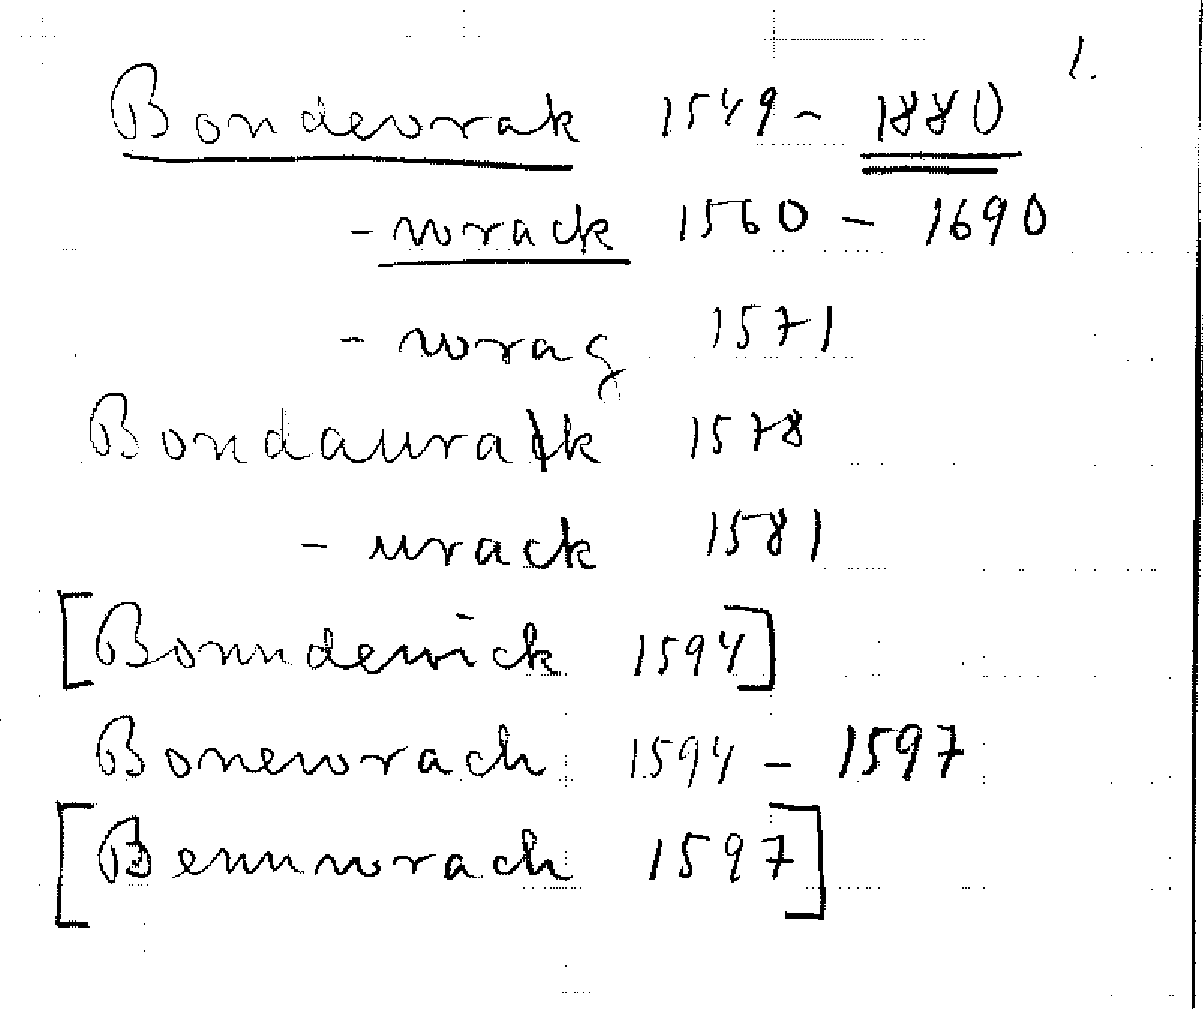 1.
Bondevrak 1549 - 1880
- wrack 1560 - 1690
- wrag 1571
Bondaurak 1578
- urack 1581
[Bonndewick 1594]
Bonewrach 1594 - 1597
[Bennwrach 1597]